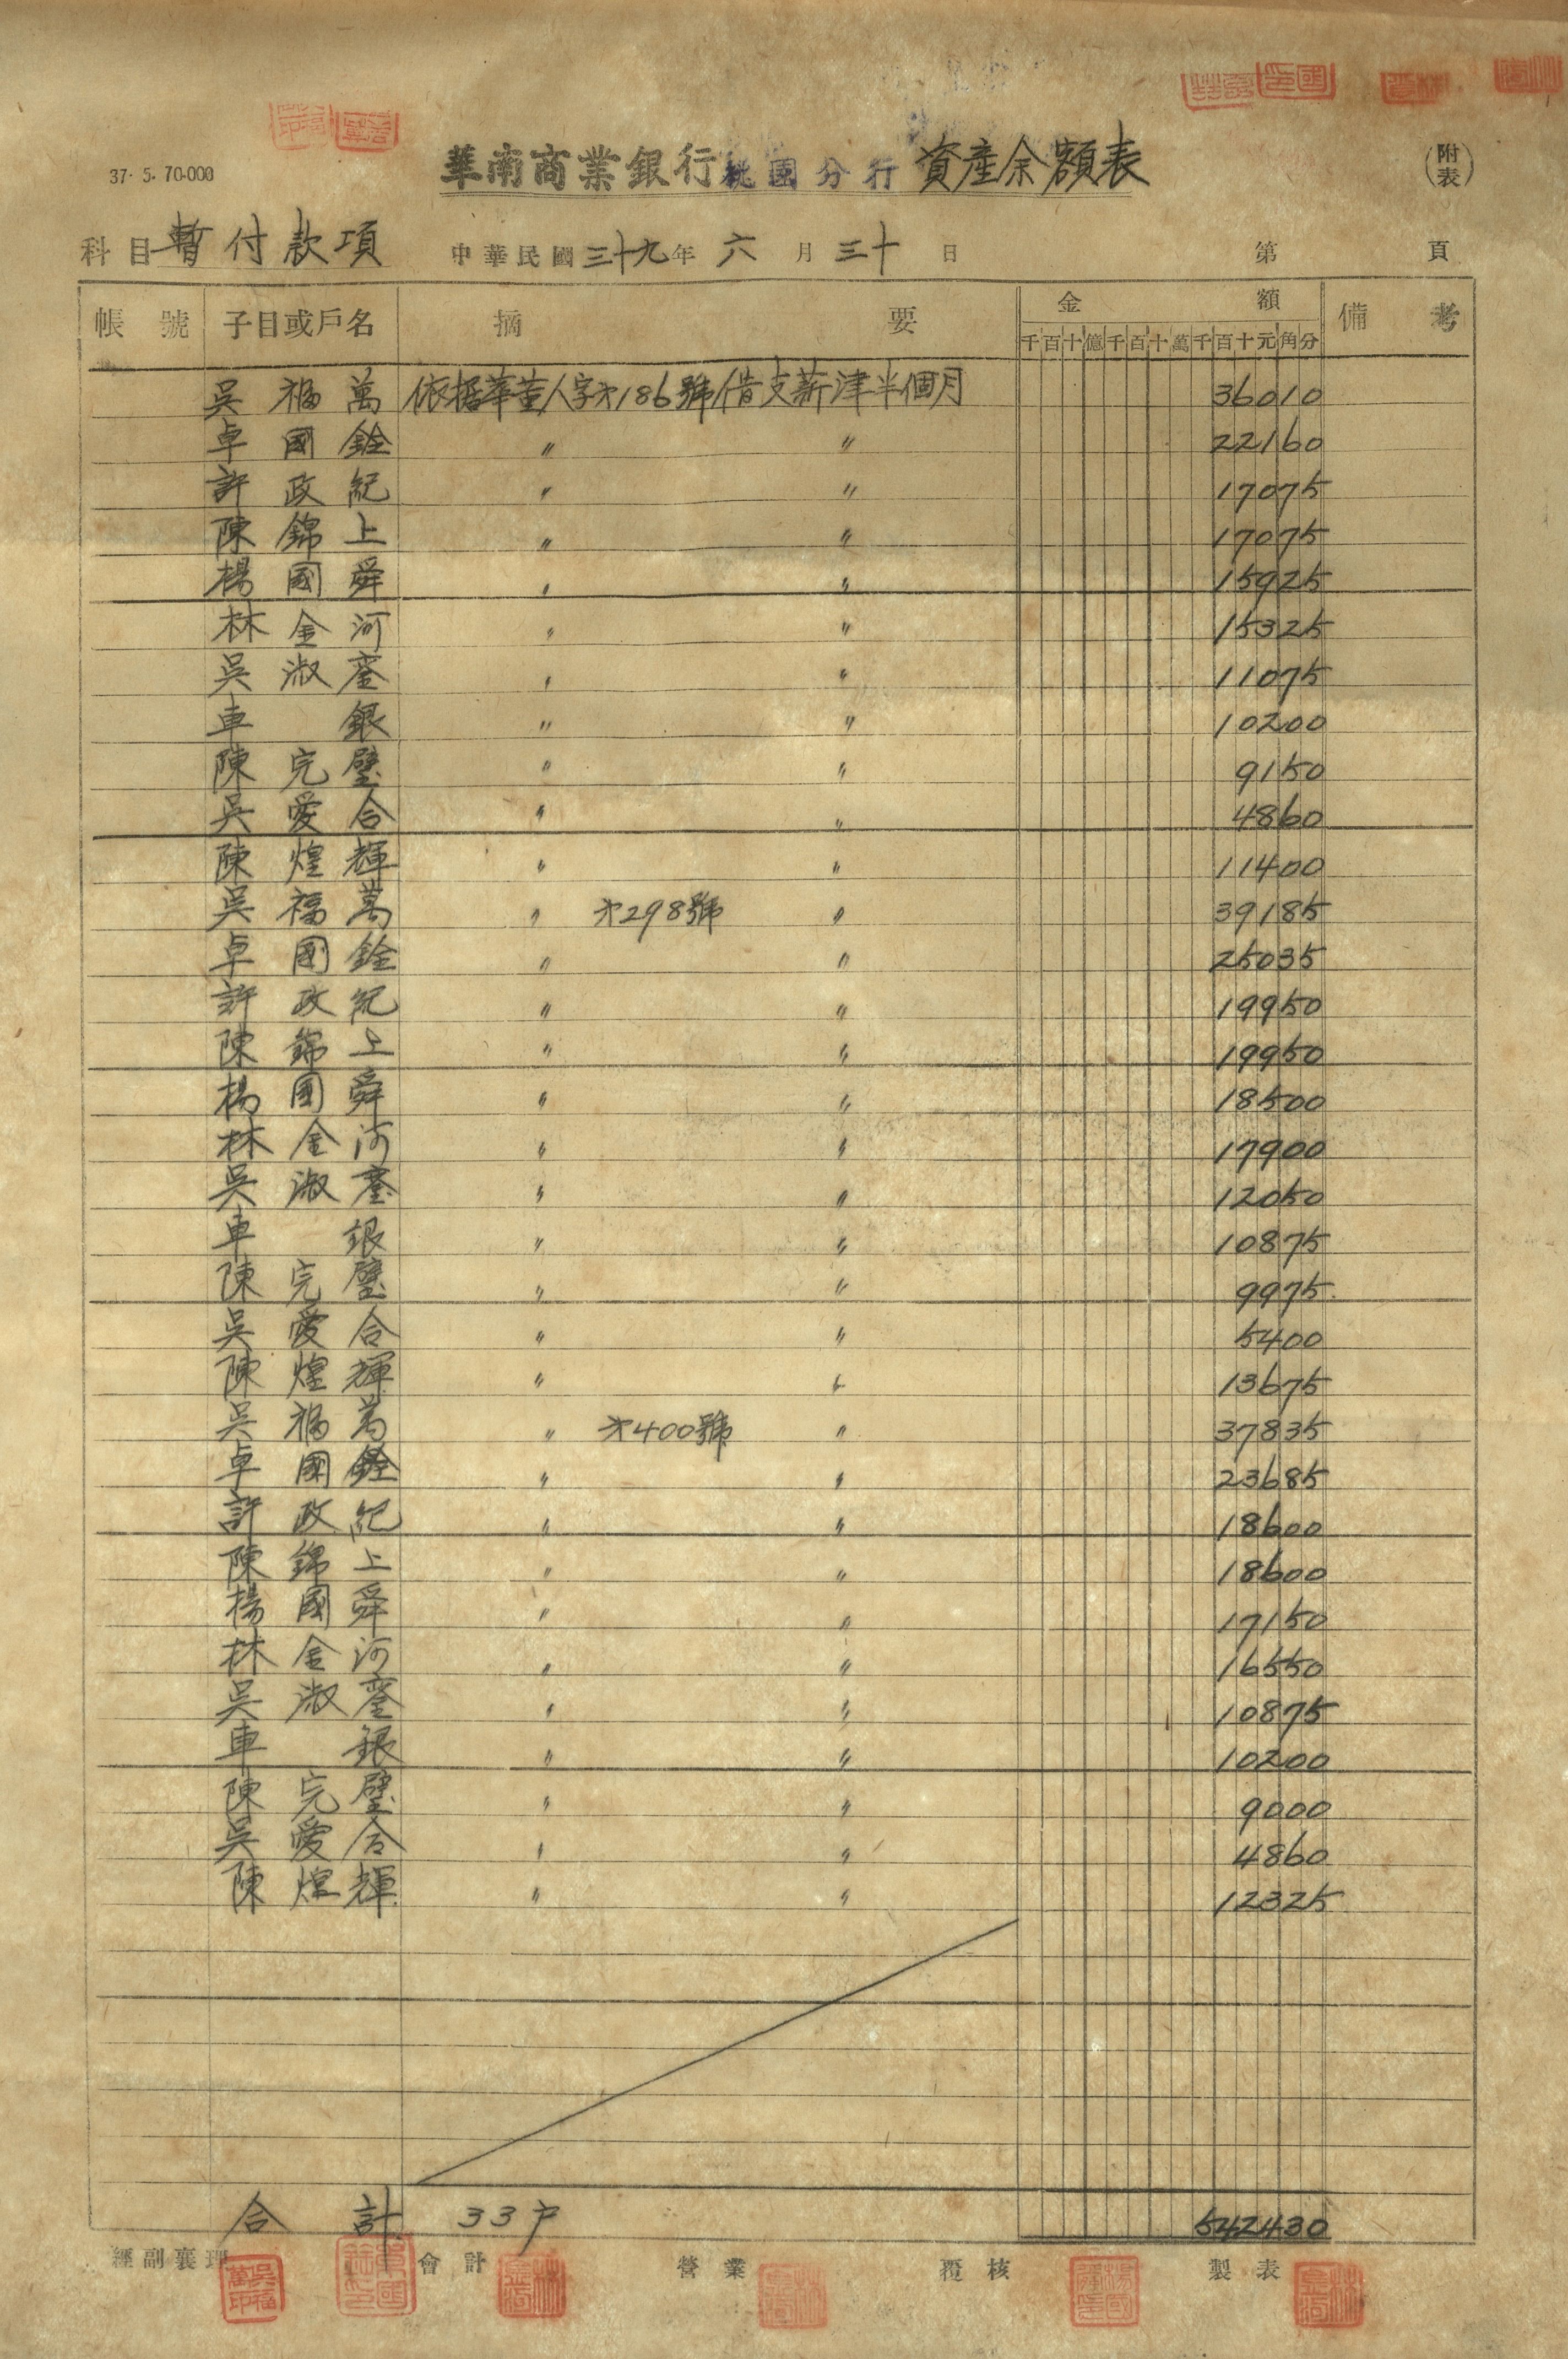 37. 5. 70.000
華南商業銀行桃園分行資產余額表
(附表)
科目暫付款項 中華民國三十九年六月三十日 第 頁
帳號 子目或戶名 摘要 金額 備考
千百十億千百十萬千百十元角分
吳福萬 依据華董人字才186號借支薪津半個月 36010
卓國銓 〃 〃 22160
許政紀 〃 〃 17075
陳錦上 〃 〃 17075
楊國舜 〃 〃 15925
林金河 〃 〃 15325
吳淑鑾 〃 〃 11075
車銀 〃 〃 10200
陳完璧 〃 〃 9150
吳愛合 〃 〃 4860
陳煌輝 〃 〃 11400
吳福萬 〃 才298號 〃 39185
卓國銓 〃 〃 25035
許政紀 〃 〃 19950
陳錦上 〃 〃 19950
楊國舜 〃 〃 18500
林金河 〃 〃 17900
吳淑鑾 〃 〃 12050
車銀 〃 〃 10875
陳完璧 〃 〃 9975
吳愛合 〃 〃 5400
陳煌輝 〃 〃 13675
吳福萬 〃 才400號 〃 37835
卓國銓 〃 〃 23685
許政紀 〃 〃 18600
陳錦上 〃 〃 18600
楊國舜 〃 〃 17150
林金河 〃 〃 16550
吳淑鑾 〃 〃 10875
車銀 〃 〃 10200
陳完璧 〃 〃 9000
吳愛合 〃 〃 4860
陳煌輝 〃 〃 12325
合計 33戶 542430
經副襄理 會計 營業 覆核 製表
吳福萬印